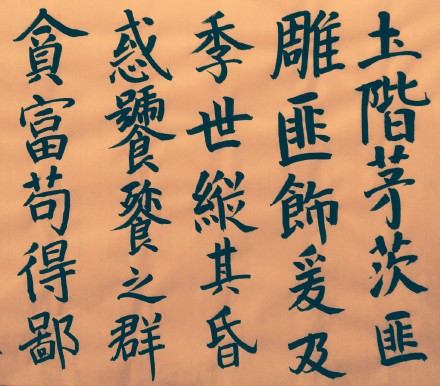 土階茅茨匪
雕匪飾爰及
季世縱其昏
惑饕餮之群
貪富苟得鄙